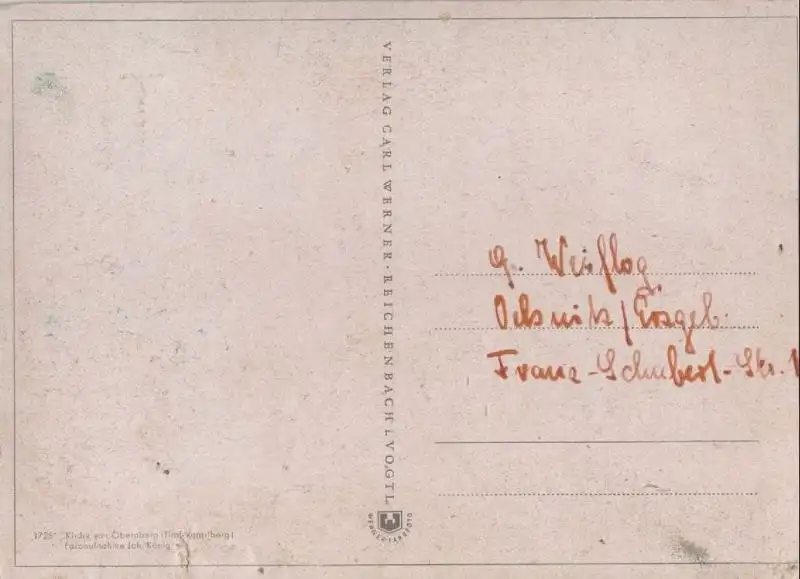 VERLAG CARL WERNER · REICHENBACH I. VOGTL.
G. Weiflog
Oelsnitz / Erzgeb.
Franz-Schubert-Str. 1
1725 Kirche von Obernberg (Tirol
Farbaufnahme Joh. König
WERNER-FARBFOTO